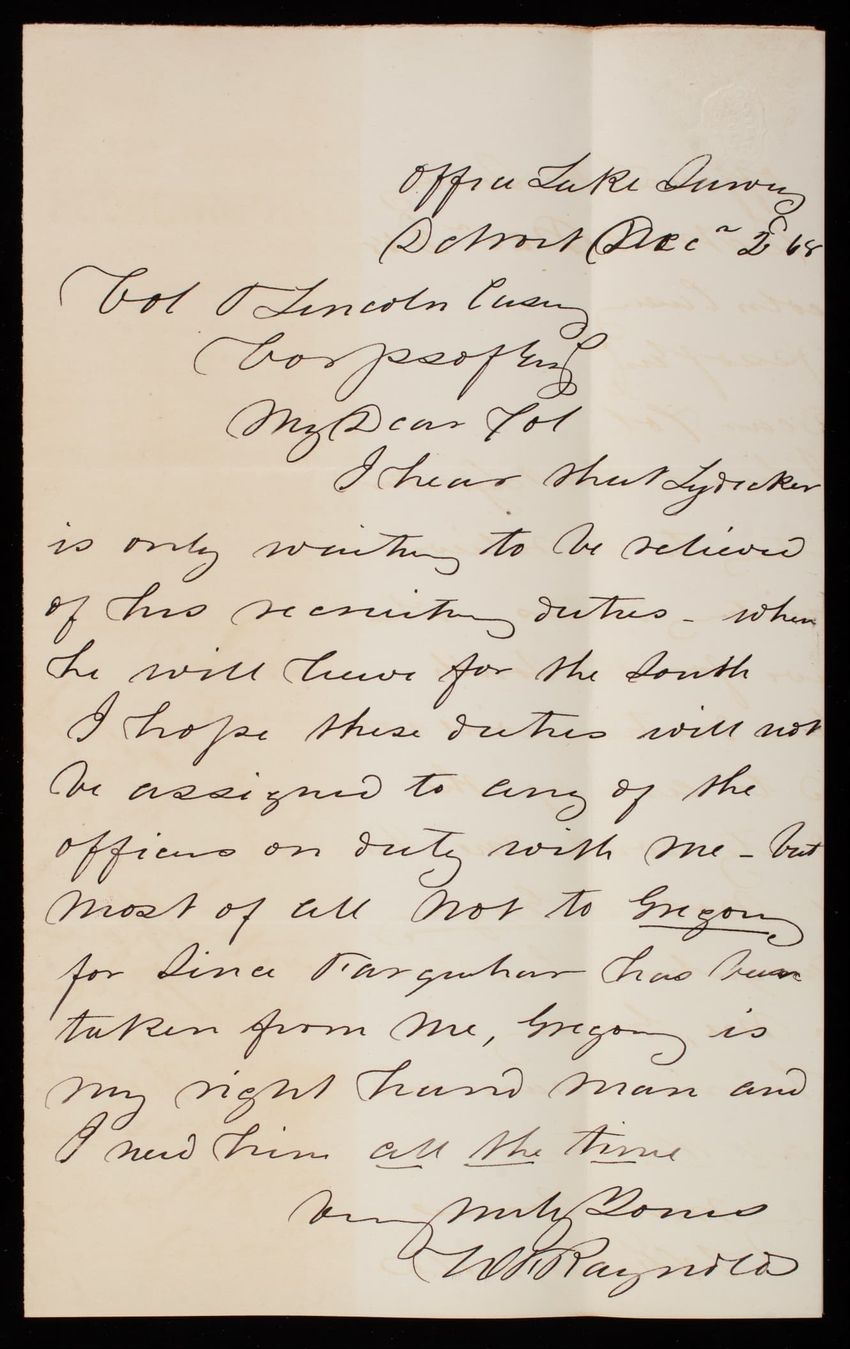 Office Lake Survey
Detroit Dec 2 68
Col T Lincoln Casey
Corps of Eng
My Dear Col
I hear that Lydecker
is only waiting to be relieved
of his recruiting duties - when
he will leave for the South
I hope these duties will not
be assigned to any of the
officers on duty with me - but
most of all not to Gregory
for since Farquhar has been
taken from me, Gregory is
my right hand man and
I need him all the time
Very truly Yours
W F Raynolds